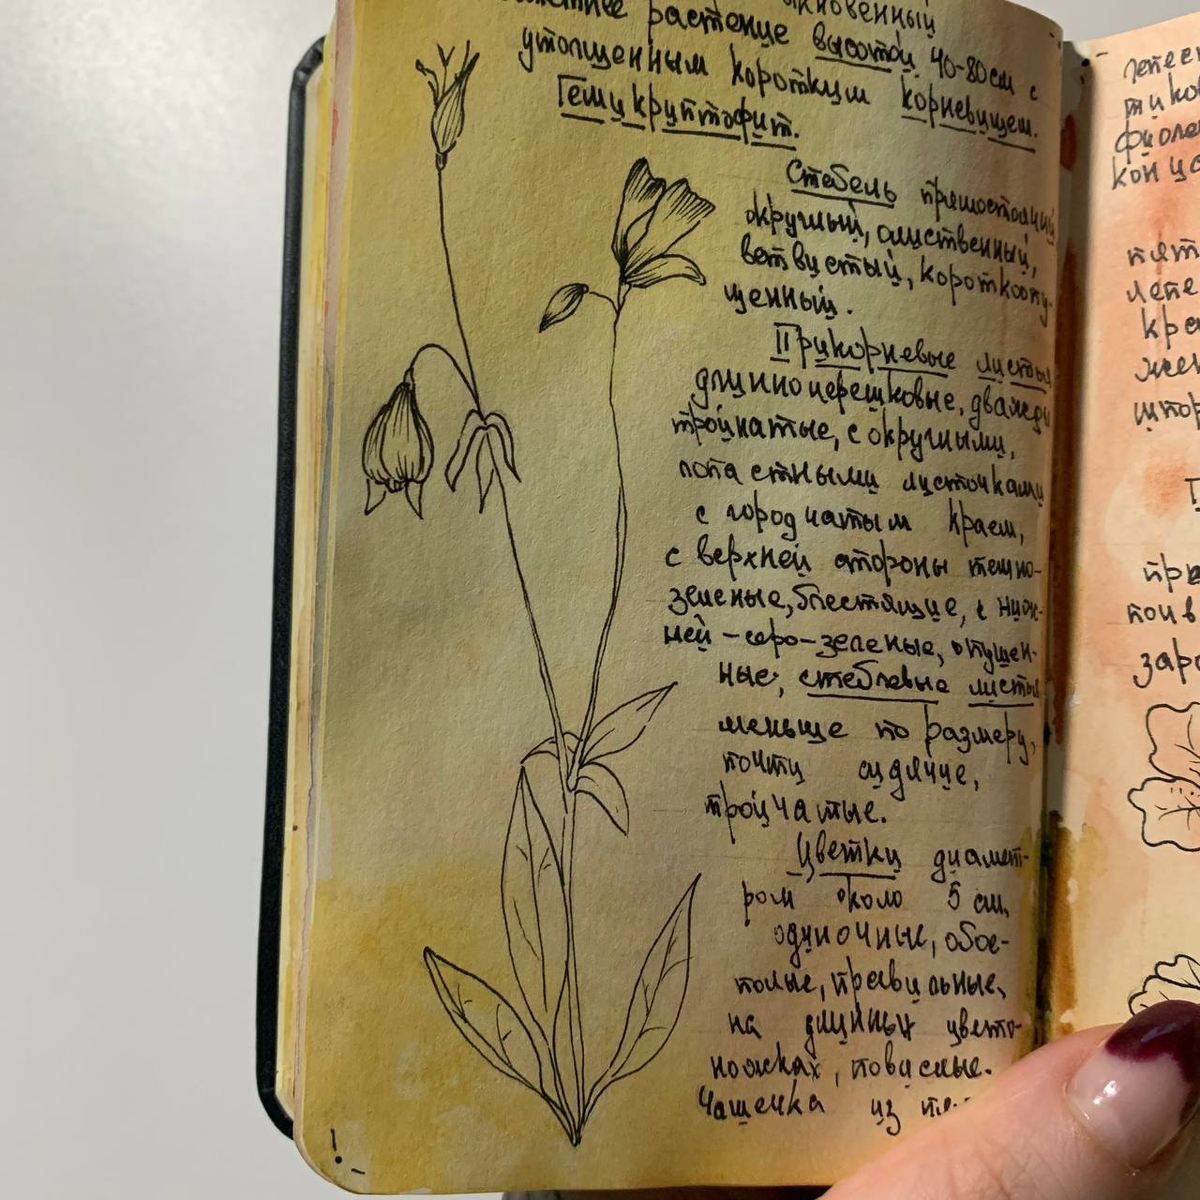 растение высотой 40-80 см с
утолщенным коротким корневищем.
Гемикриптофит.
Стебель прямостоячий
округлый, олиственный,
ветвистый, короткоопу-
щенный.
Прикорневые листья
длинночерешковые, дважды
тройчатые, с округлыми,
лопастными листочками
с городчатым краем,
с верхней стороны темно-
зеленые, блестящие, с ниж-
ней - серо-зеленые, опушен-
ные, стеблевые листья
меньше по размеру,
почти сидячие,
тройчатые.
Цветки диамет-
ром около 5 см,
одиночные, обое-
полые, правильные,
на длинных цвето-
ножках, повислые.
Чашечка из
лепест
тиков
фиоле
конца
пят
лепе
кра
жен
шпор
пры
зарос